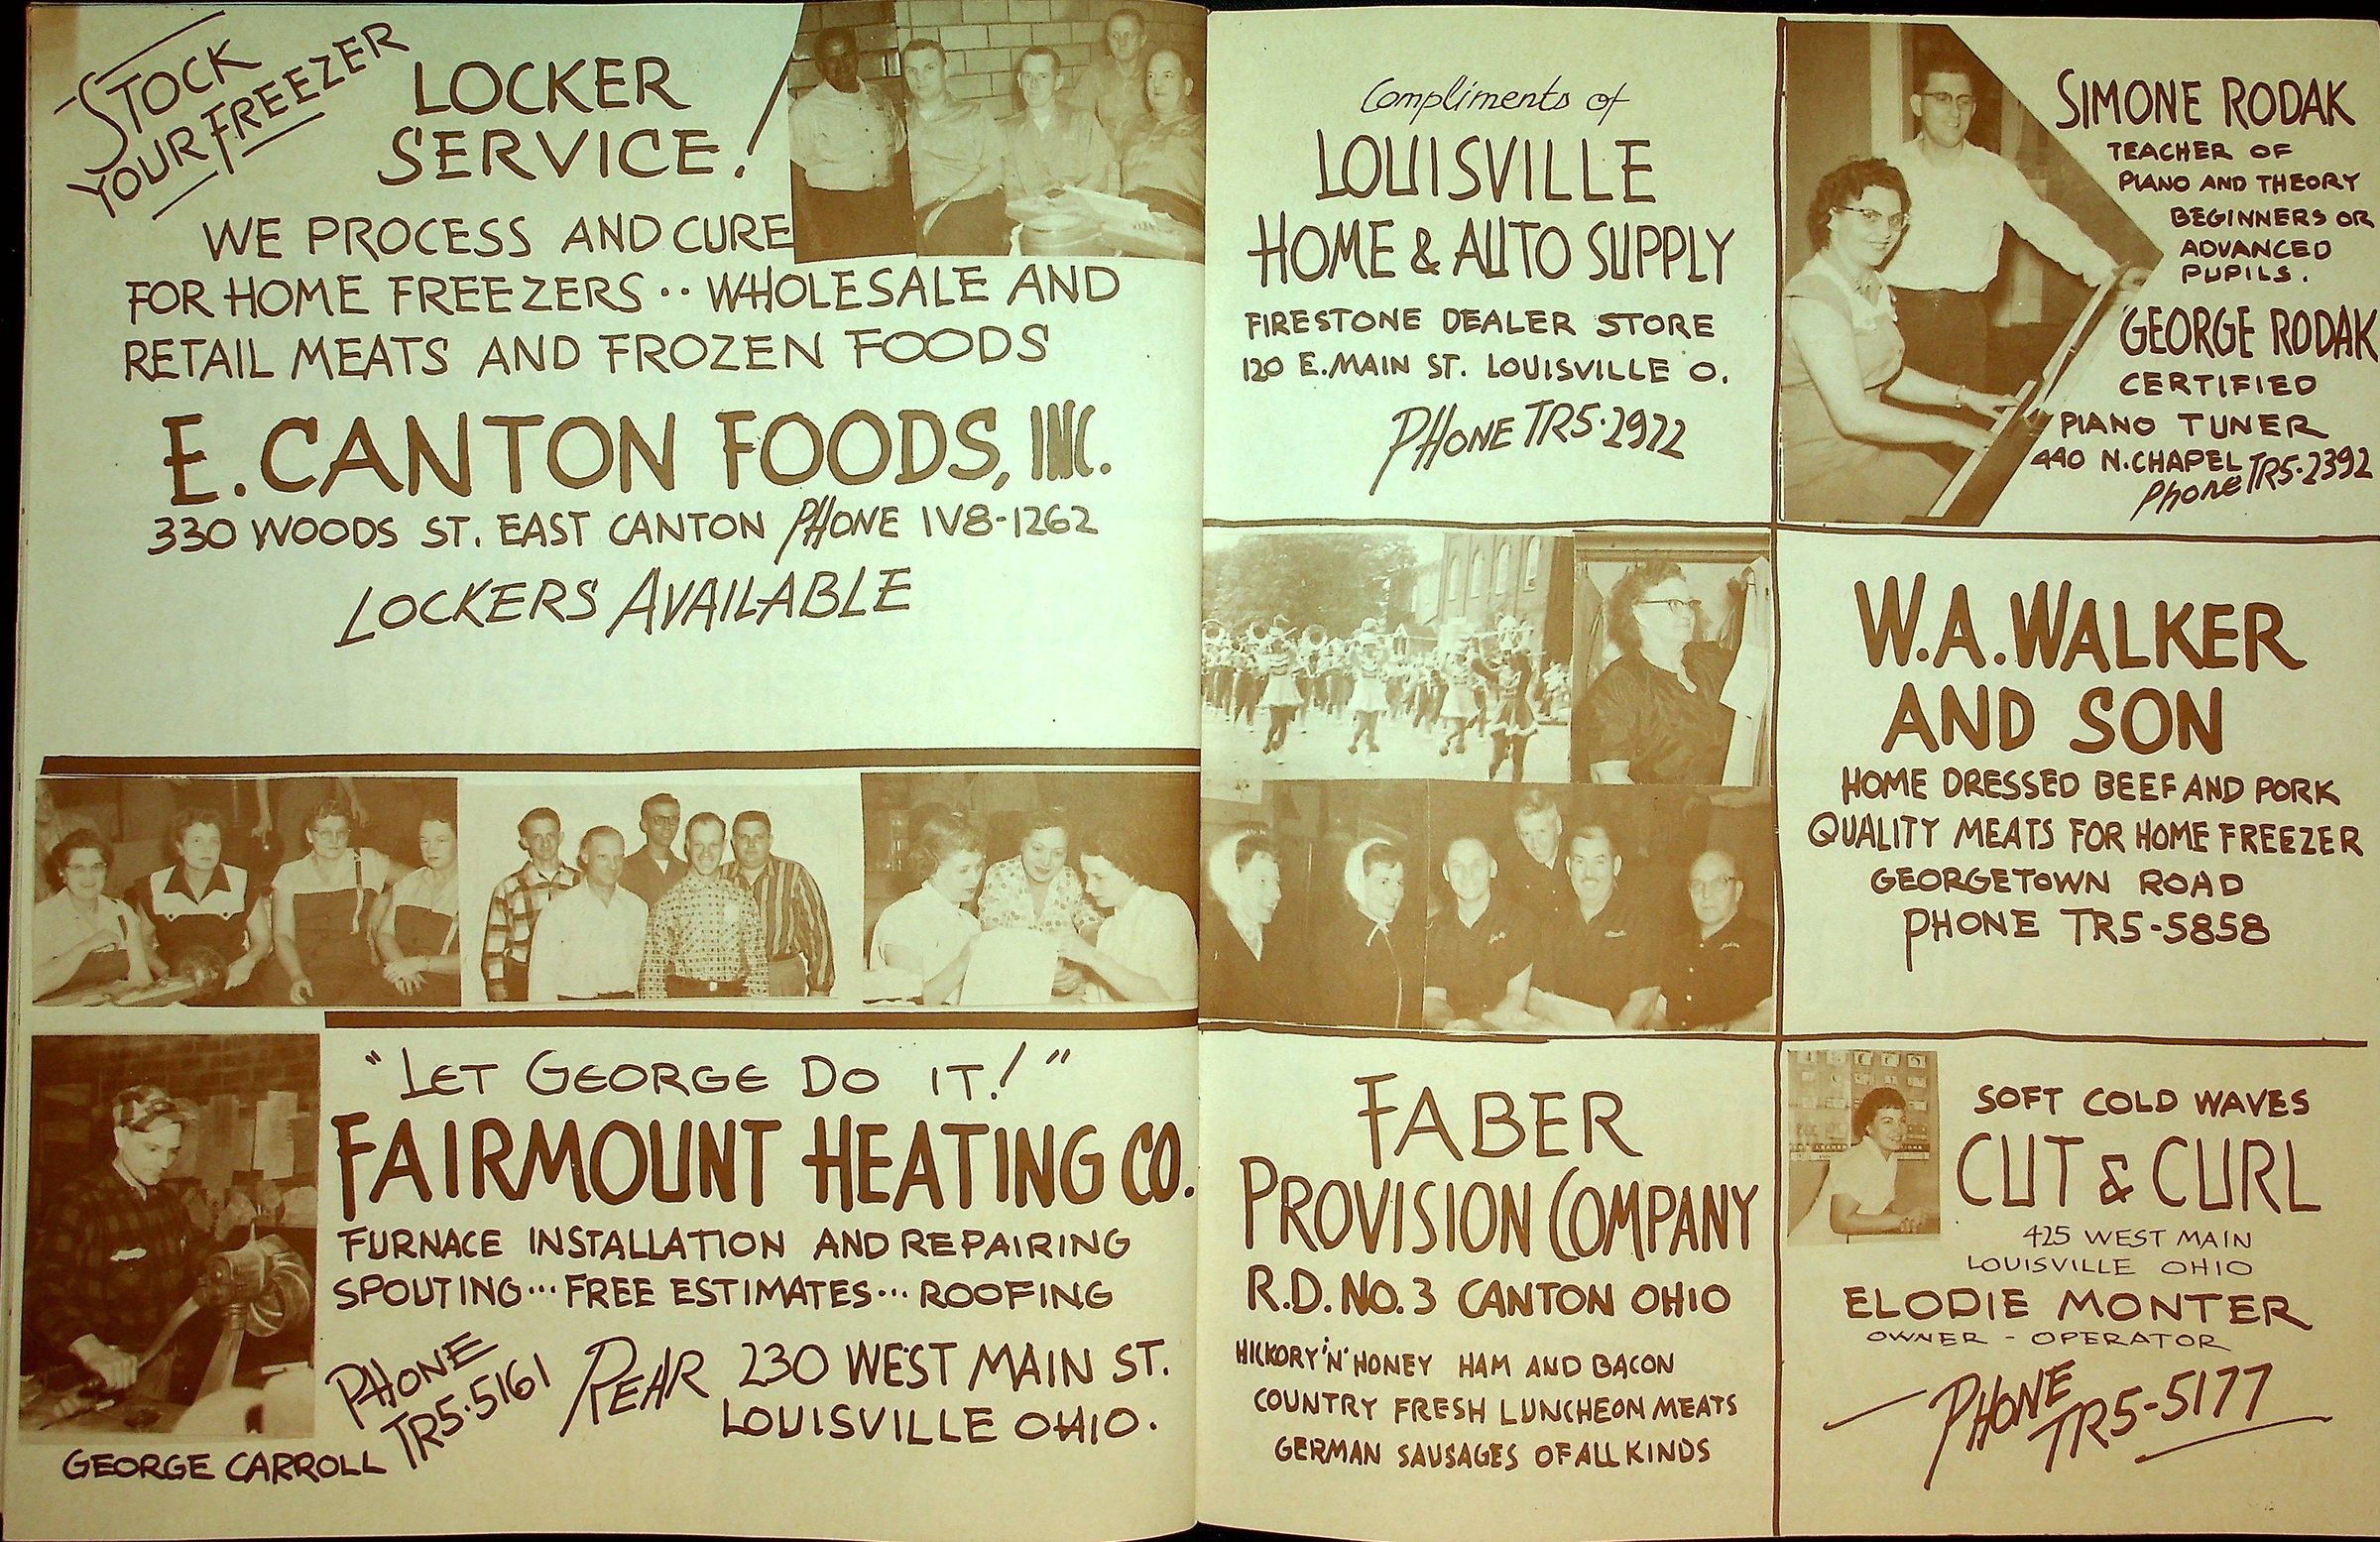 STOCK
YOUR FREEZER
LOCKER
SERVICE!
WE PROCESS AND CURE
FOR HOME FREEZERS·· WHOLESALE AND
RETAIL MEATS AND FROZEN FOODS
E. CANTON FOODS, INC.
330 WOODS ST. EAST CANTON PHONE IV8-1262
LOCKERS AVAILABLE
"LET GEORGE DO IT!"
FAIRMOUNT HEATING CO.
FURNACE INSTALLATION AND REPAIRING
SPOUTING... FREE ESTIMATES... ROOFING
PHONE
TR5·5161
REAR 230 WEST MAIN ST.
LOUISVILLE OHIO.
GEORGE CARROLL
Compliments of
LOUISVILLE
HOME & AUTO SUPPLY
FIRESTONE DEALER STORE
120 E. MAIN ST. LOUISVILLE O.
PHONE TR5·2922
SIMONE RODAK
TEACHER OF
PIANO AND THEORY
BEGINNERS OR
ADVANCED
PUPILS.
GEORGE RODAK
CERTIFIED
PIANO TUNER
440 N. CHAPEL
Phone TR5·2392
W.A. WALKER
AND SON
HOME DRESSED BEEF AND PORK
QUALITY MEATS FOR HOME FREEZER
GEORGETOWN ROAD
PHONE TR5-5858
FABER
PROVISION COMPANY
R.D. NO. 3 CANTON OHIO
HICKORY 'N' HONEY HAM AND BACON
COUNTRY FRESH LUNCHEON MEATS
GERMAN SAUSAGES OF ALL KINDS
SOFT COLD WAVES
CUT & CURL
425 WEST MAIN
LOUISVILLE OHIO
ELODIE MONTER
OWNER - OPERATOR
PHONE
TR5-5177